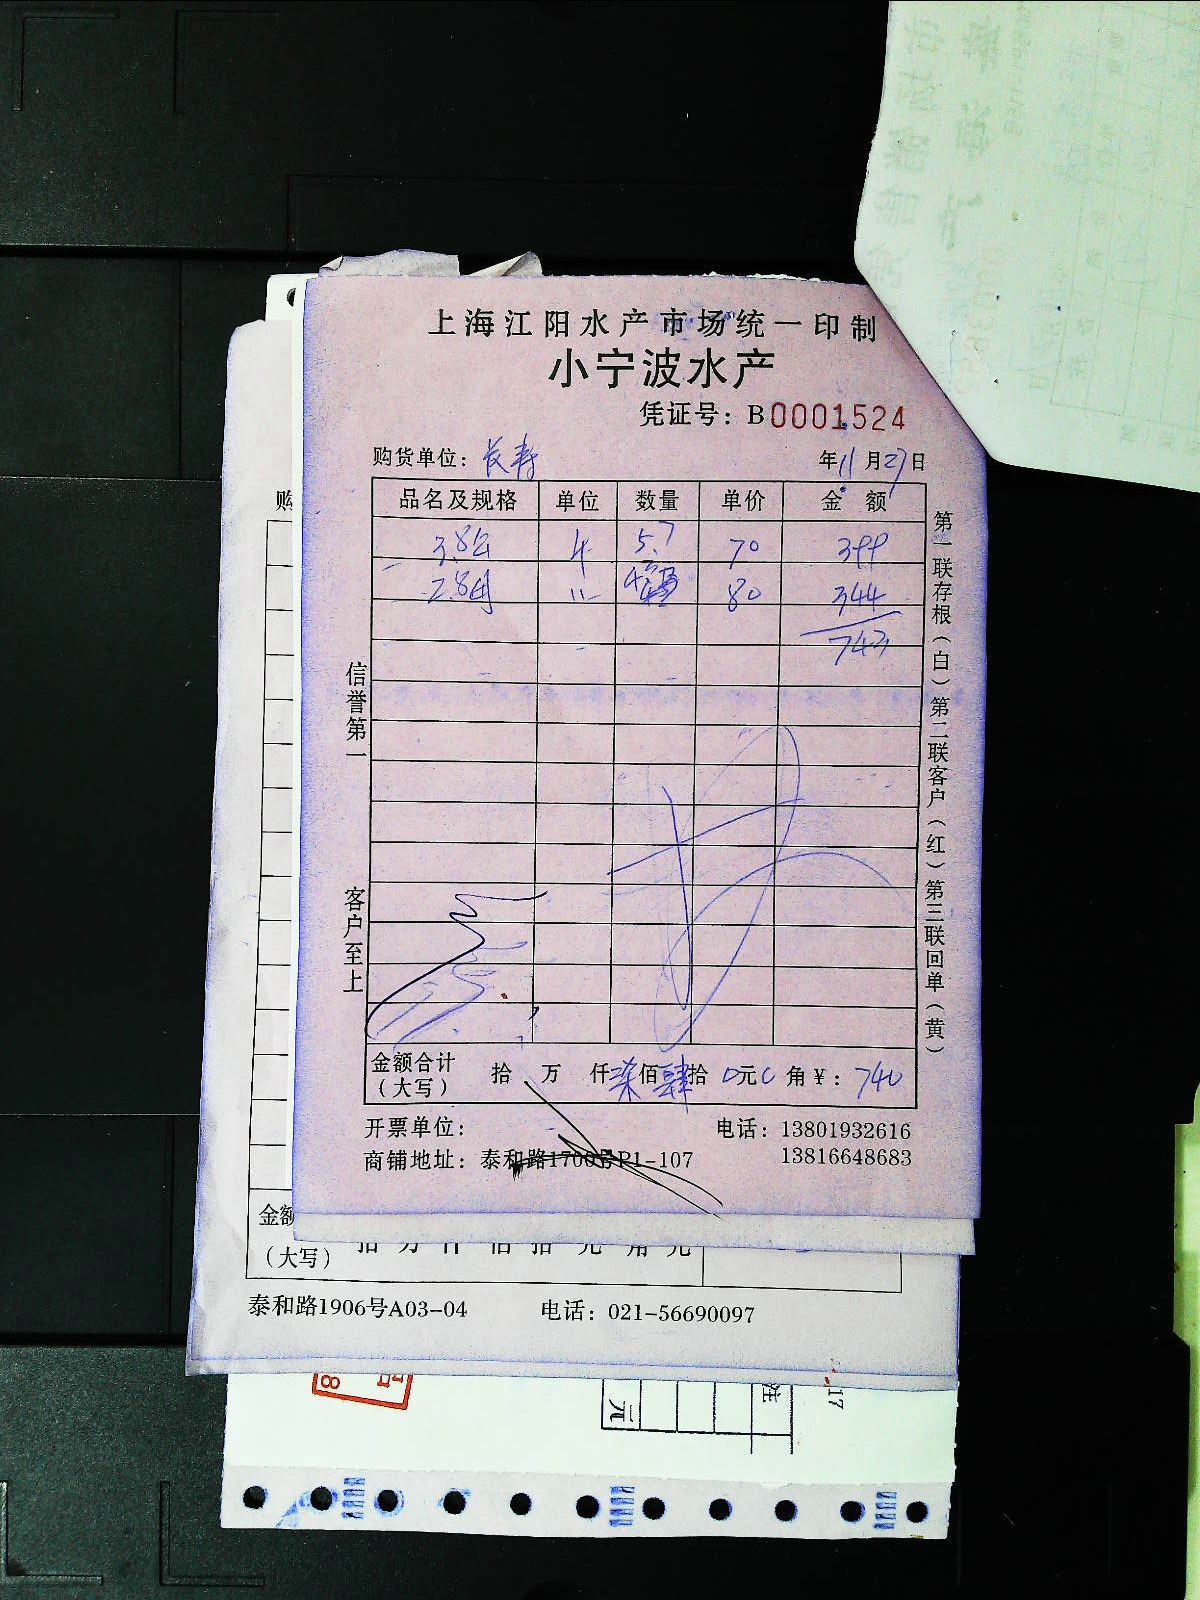 上海江阳水产市场统一印制
小宁波水产
凭证号：B0001524
购货单位：长寿
年11月27日
品名及规格 单位 数量 单价 金额
3.8公 斤 5.7 70 399
2.8母 〃 80 344
743
信誉第一
客户至上
第一联存根（白）第二联客户（红）第三联回单（黄）
金额合计（大写） 拾 万 仟柒佰肆拾0元0角¥：740
开票单位：
电话：13801932616
商铺地址：泰和路1700号P1-107
13816648683
购
金额
（大写） 拾 万 仟 佰 拾 元 角 元
泰和路1906号A03-04 电话：021-56690097